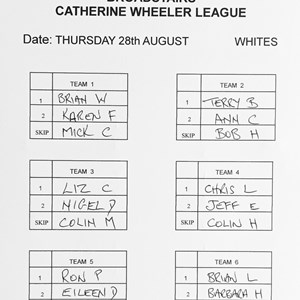 CATHERINE WHEELER LEAGUE
Date: THURSDAY 28th AUGUST WHITES
TEAM 1
1 BRIAN W
2 KAREN F
SKIP MICK C
TEAM 2
1 TERRY B
2 ANN C
SKIP BOB H
TEAM 3
1 LIZ C
2 NIGEL D
SKIP COLIN M
TEAM 4
1 CHRIS L
2 JEFF E
SKIP COLIN H
TEAM 5
1 RON P
2 EILEEN D
TEAM 6
1 BRIAN L
2 BARBARA H